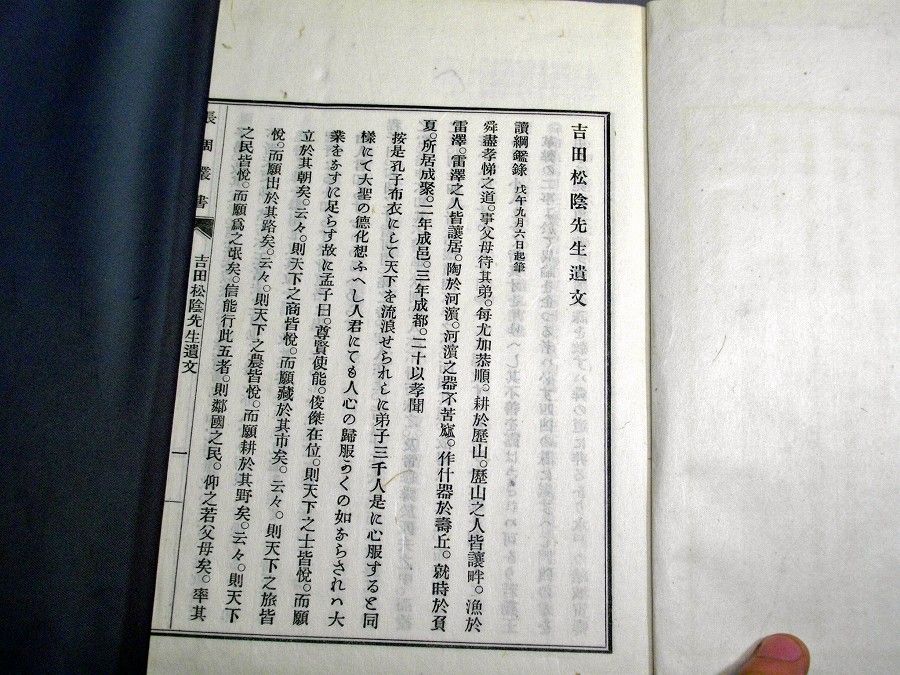 吉田松陰先生遺文
讀綱鑑錄 戊午九月六日起筆
舜盡孝悌之道。事父母待其弟。每尤加恭順。耕於歷山。歷山之人皆讓畔。漁於
雷澤。雷澤之人皆讓居。陶於河濱。河濱之器不苦窳。作什器於壽丘。就時於負
夏。所居成聚。二年成邑。三年成都。二十以孝聞
按是孔子布衣にして天下を流浪せられしに弟子三千人是に心服すると同
樣にて大聖の德化想ふへし人君にても人心の歸服かくの如ならされハ大
業をなすに足らす故に孟子曰。尊賢使能。俊傑在位。則天下之士皆悅。而願
立於其朝矣。云々。則天下之商皆悅。而願藏於其市矣。云々。則天下之旅皆
悅。而願出於其路矣。云々。則天下之農皆悅。而願耕於其野矣。云々。則天下
之民皆悅。而願爲之氓矣。信能行此五者。則鄰國之民。仰之若父母矣。率其
長周叢書
吉田松陰先生遺文
一